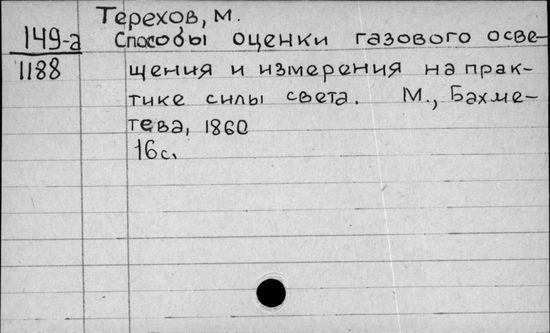 Терехов, М.
149-а
Способы оценки газового осве-
1188
щения и измерения на прак-
тике силы света. М., Бахме-
тева, 1860
16с.